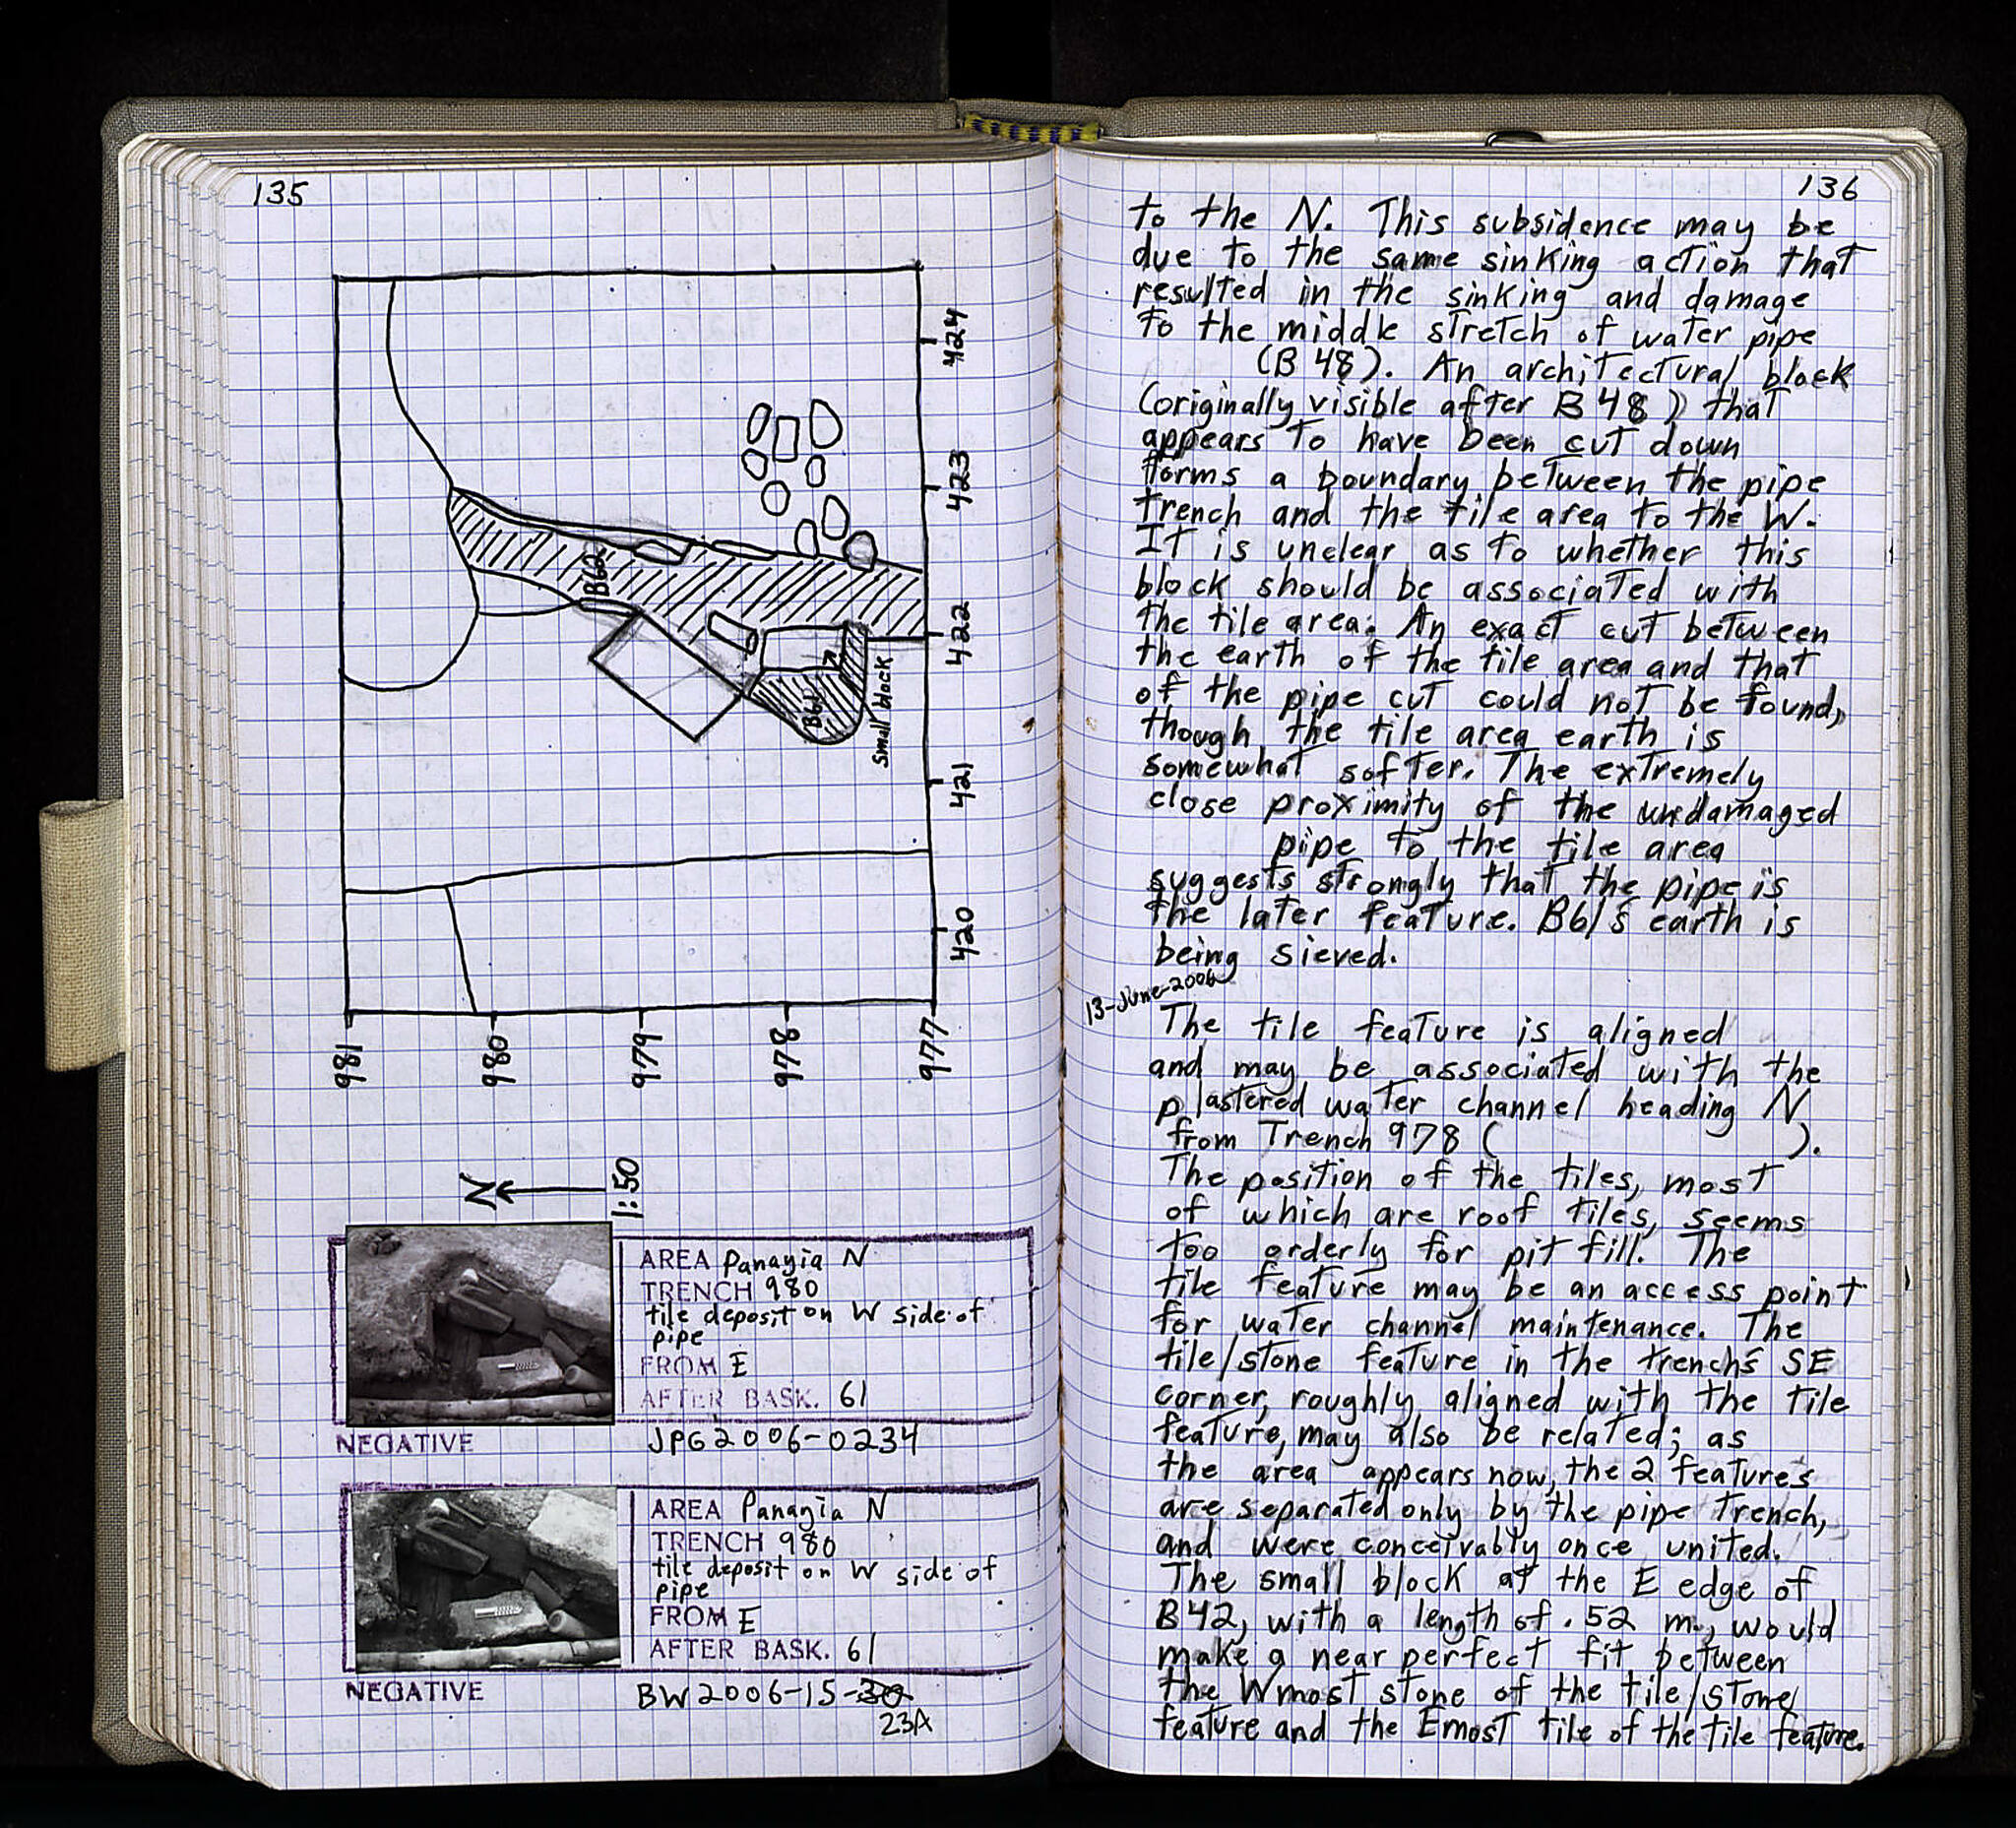 135
424
423
422
421
420
B62
B61
small block
981
980
979
978
977
N
1:50
AREA Panayia N
TRENCH 980
tile deposit on W side of
pipe
FROM E
AFTER BASK. 61
NEGATIVE JPG2006-0234
AREA Panayia N
TRENCH 980
tile deposit on W side of
pipe
FROM E
AFTER BASK. 61
NEGATIVE BW2006-15-30
23A
136
to the N. This subsidence may be
due to the same sinking action that
resulted in the sinking and damage
to the middle stretch of water pipe
(B 48). An architectural block
(originally visible after B 48) that
appears to have been cut down
forms a boundary between the pipe
trench and the tile area to the W.
It is unclear as to whether this
block should be associated with
the tile area. An exact cut between
the earth of the tile area and that
of the pipe cut could not be found,
though the tile area earth is
somewhat softer. The extremely
close proximity of the undamaged
pipe to the tile area
suggests strongly that the pipe is
the later feature. B61's earth is
being sieved.
13-June-2006
The tile feature is aligned
and may be associated with the
plastered water channel heading N
from Trench 978 ( ).
The position of the tiles, most
of which are roof tiles, seems
too orderly for pit fill. The
tile feature may be an access point
for water channel maintenance. The
tile/stone feature in the trench's SE
corner, roughly aligned with the tile
feature, may also be related; as
the area appears now, the 2 features
are separated only by the pipe trench,
and were conceivably once united.
The small block at the E edge of
B42, with a length of .52 m., would
make a near perfect fit between
the Wmost stone of the tile/stone
feature and the Emost tile of the tile feature.